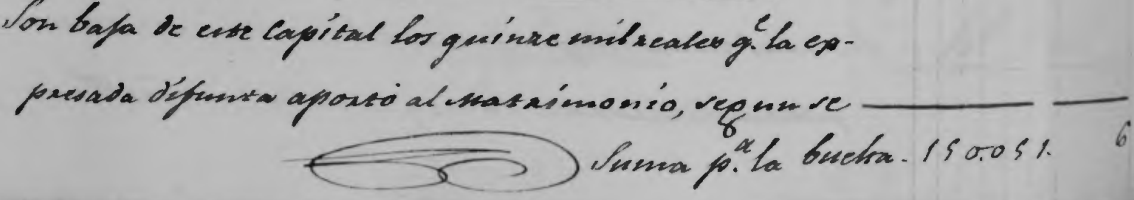 Son baja de este Capital los quinze mil reales q.e la ex-
presada difunta aportó al Matrimonio, segun se
Suma p.a la buelta. 150.051. 6